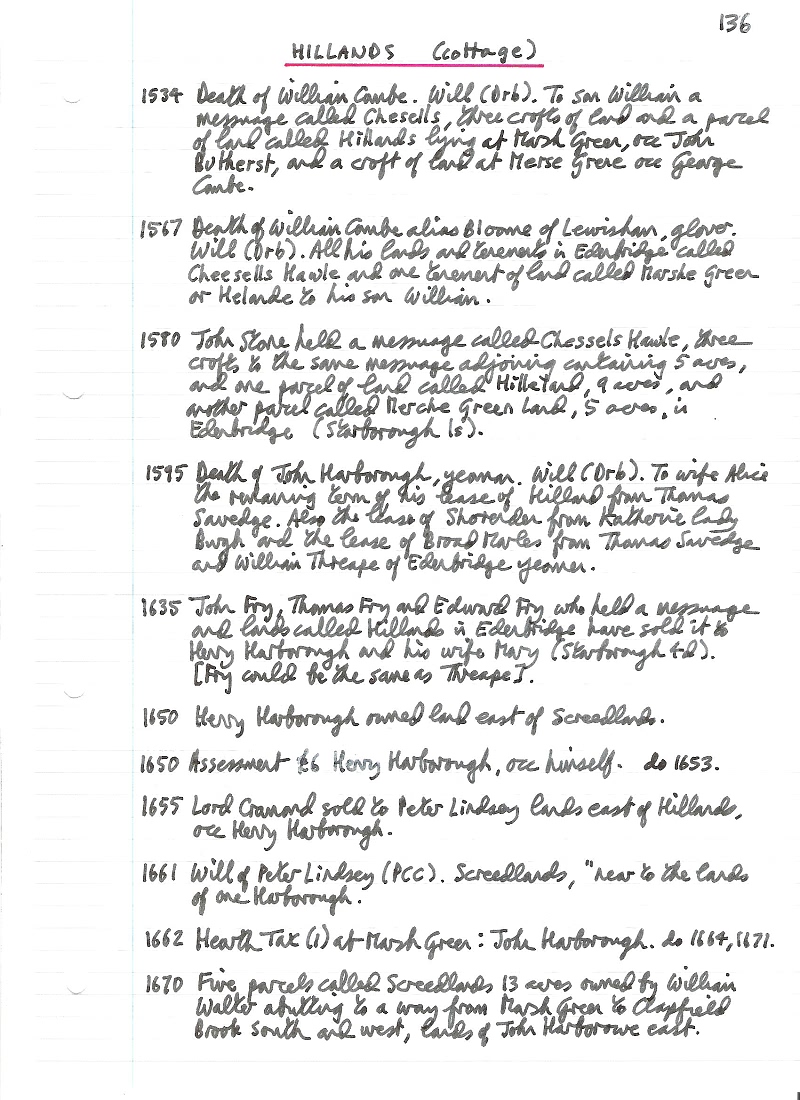 136
HILLANDS (cottage)
1534 Death of William Combe. Will (Drb). To son William a
messuage called Chesells, three crofts of land and a parcel
of land called Hillards lying at Marsh Green, occ John
Butherst, and a croft of land at Merse Grene occ George
Combe.
1567 Death of William Combe alias Bloome of Lewisham, glover.
Will (Drb). All his lands and tenements in Edenbridge called
Cheesells Hawle and one tenement of land called Marshe Green
or Helande to his son William.
1580 John Stone held a messuage called Chessels Hawle, three
crofts to the same messuage adjoining containing 5 acres,
and one parcel of land called Hilleland, 9 acres, and
another parcel called Merche Green Land, 5 acres, in
Edenbridge (Starborough 1s).
1595 Death of John Harborough, yeoman. Will (Drb). To wife Alice
the remaining term of his lease of Hilland from Thomas
Savedge. Also the lease of Shorenden from Katherine Lady
Burgh and the lease of Broad Marles from Thomas Savedge
and William Threape of Edenbridge yeoman.
1635 John Fry, Thomas Fry and Edward Fry who held a messuage
and lands called Hillands in Edenbridge have sold it to
Henry Harborough and his wife Mary (Starborough 4d).
[Fry could be the same as Threape].
1650 Henry Harborough owned land east of Screedlands.
1650 Assessment £6 Henry Harborough, occ himself. do 1653.
1655 Lord Cramond sold to Peter Lindsey lands east of Hillands,
occ Henry Harborough.
1661 Will of Peter Lindsey (PCC). Screedlands, "near to the lands
of one Harborough.
1662 Hearth Tax (1) at Marsh Green: John Harborough. do 1664, 1671.
1670 Five parcels called Screedlands 13 acres owned by William
Walter abutting to a way from Marsh Green to Clapfield
Brook South and west, lands of John Harborowe east.